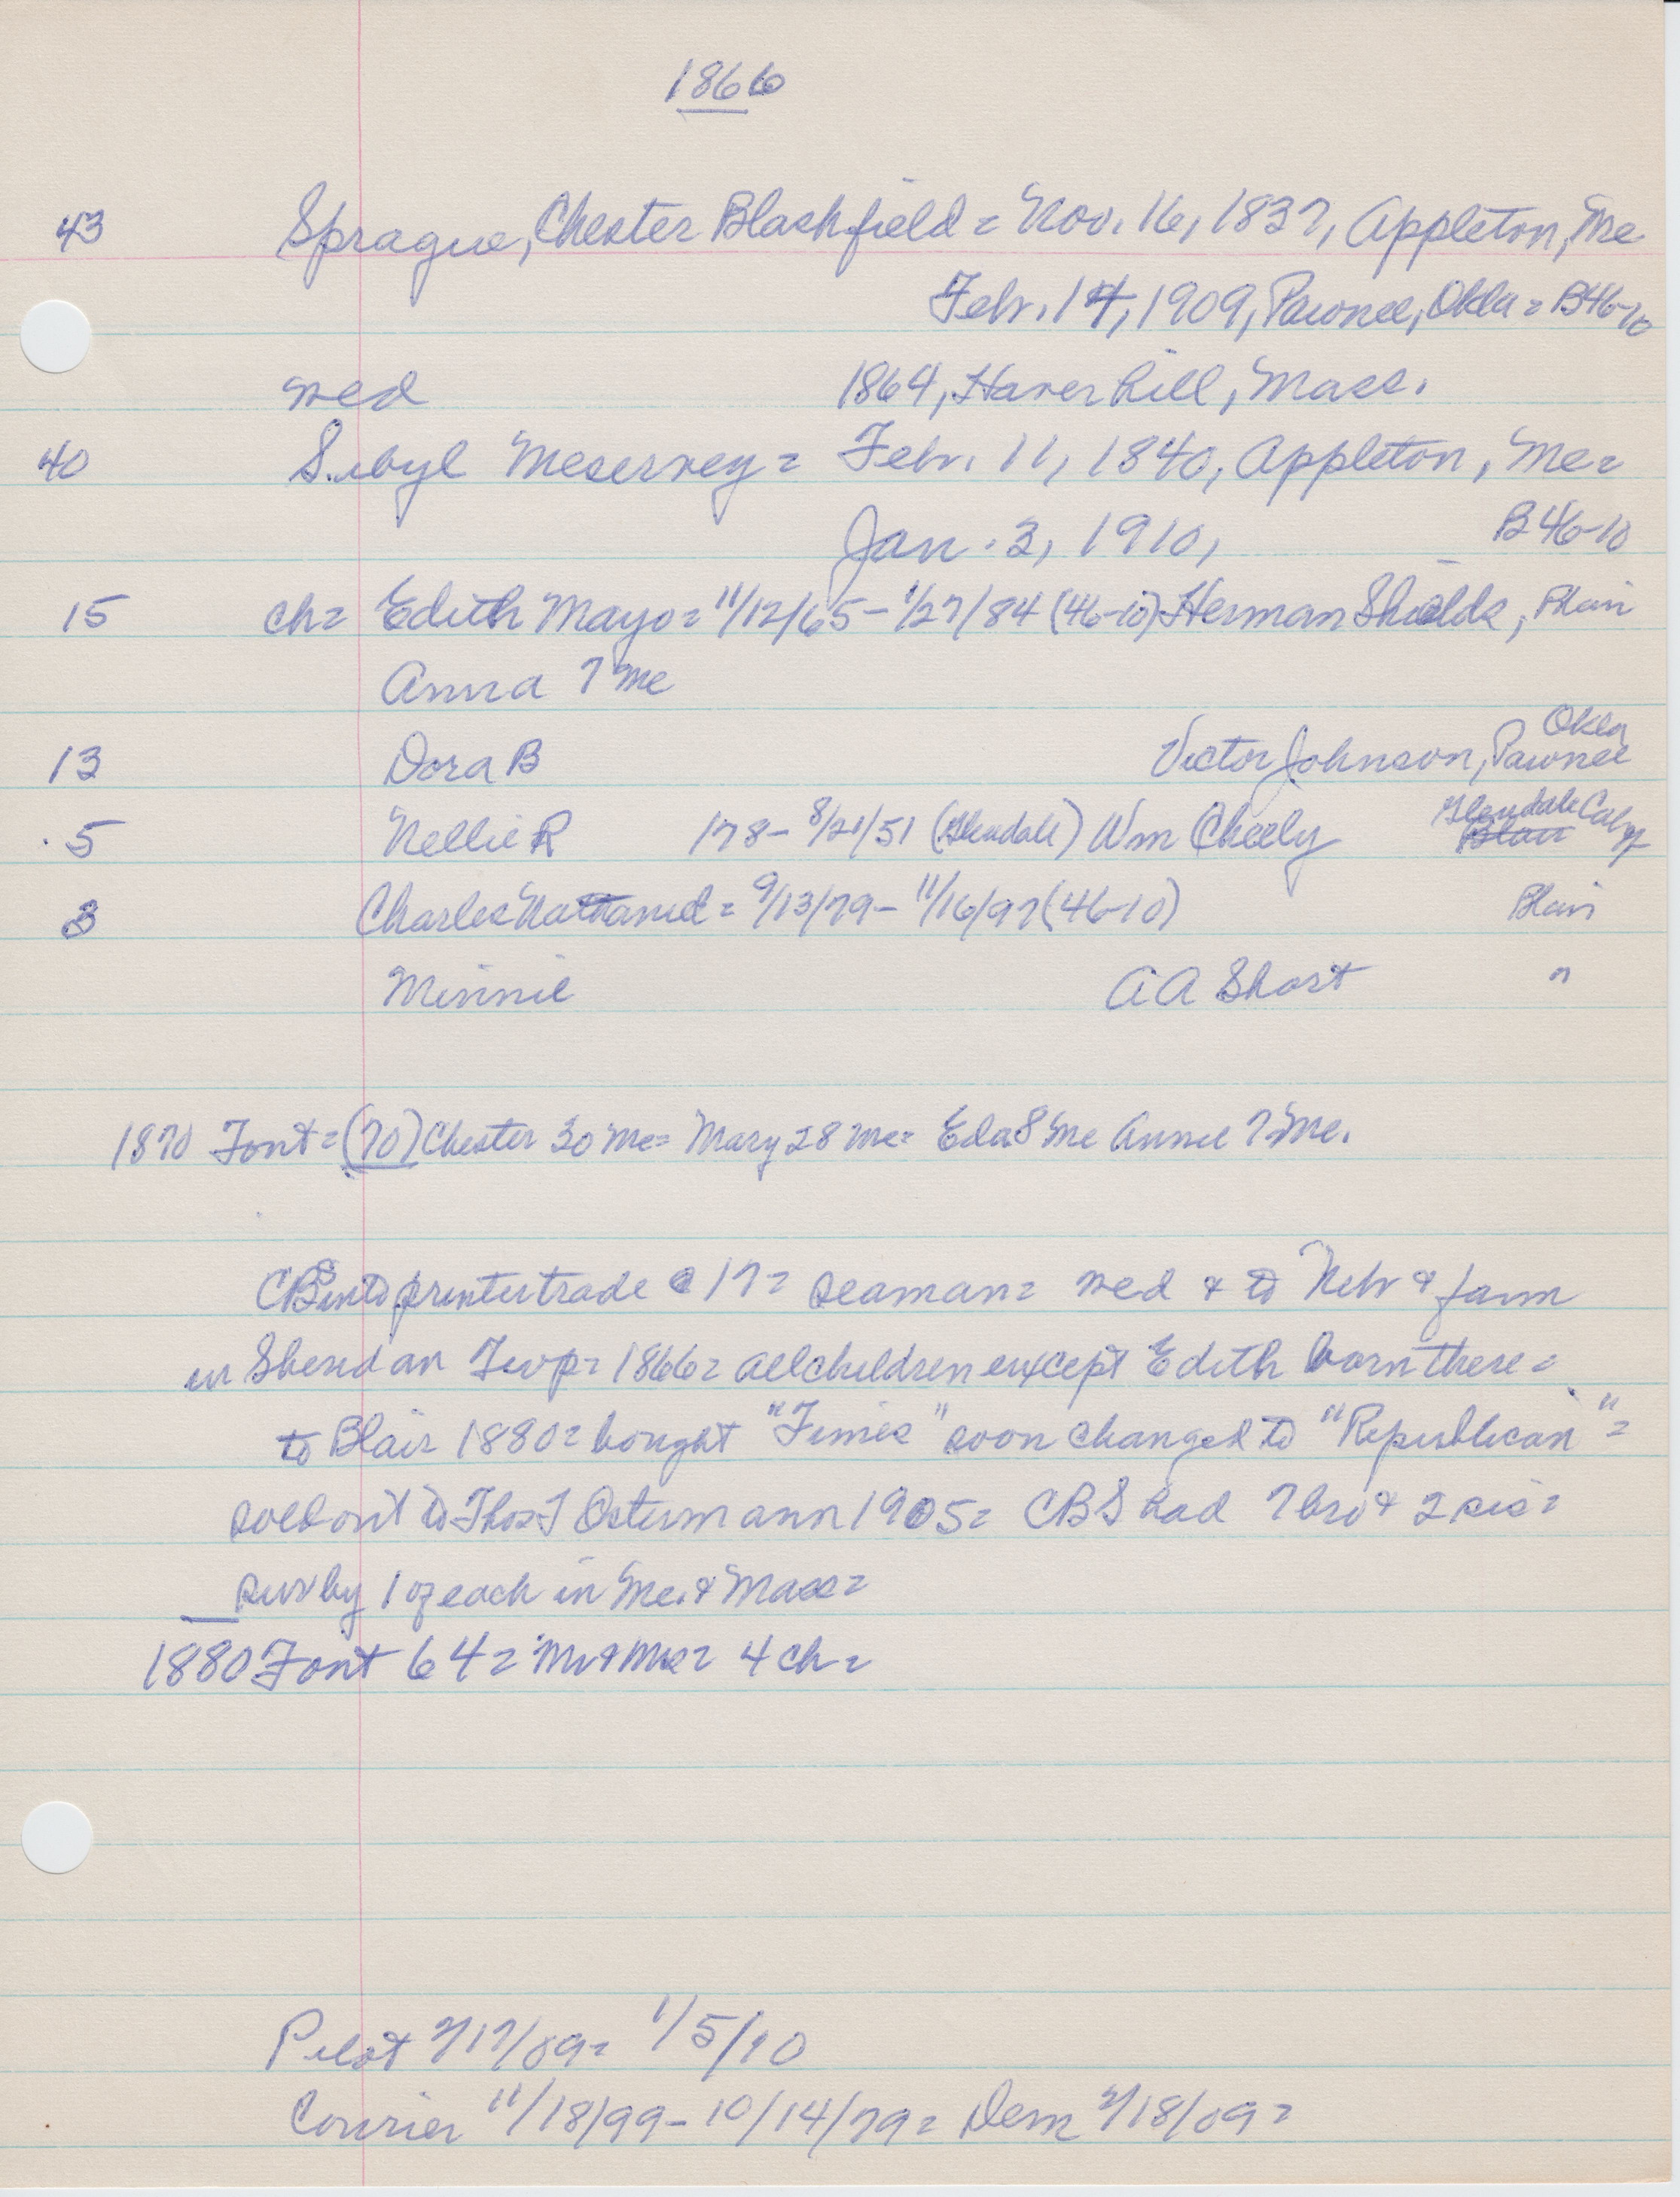 1866
43 Sprague, Chester Blashfield = Nov. 16, 1837, Appleton, Me
Feb. 14, 1909, Pawnee, Okla = B46-10
wed 1864, Haverhill, Mass.
40 Sibyl Meservey = Feb. 11, 1840, Appleton, Me =
Jan. 3, 1910, B46-10
15 ch = Edith Mayo = 11/12/65 - 1/27/84 (46-10) Herman Shields, Blair
Anna 7 Me
13 Dora B Victor Johnson, Pawnee Okla
5 Nellie R 178- 8/21/51 (Glendale) Wm Cheely Glendale Calif Blair
3 Charles Nathaniel = 9/13/79 - 11/16/97 (46-10) Blair
Minnie A A Short "
1870 Font = (70) Chester 30 Me = Mary 28 Me = Eda 8 Me Annie 7 Me.
CBS into printer trade @ 17 = seaman = wed & to Nebr & farm
in Sheridan Twp = 1866 = all children except Edith born there =
to Blair 1880 = bought "Times" soon changed to "Republican" =
sold out to Thos T Ostermann 1905 = CBS had 7 bro & 2 sis =
surv by 1 of each in Me. & Mass =
1880 Font 64 = Mr & Mrs = 4 ch =
Pilot 2/17/09 = 1/5/10
Courier 11/18/99 - 10/14/79 = Dem 2/18/09 =